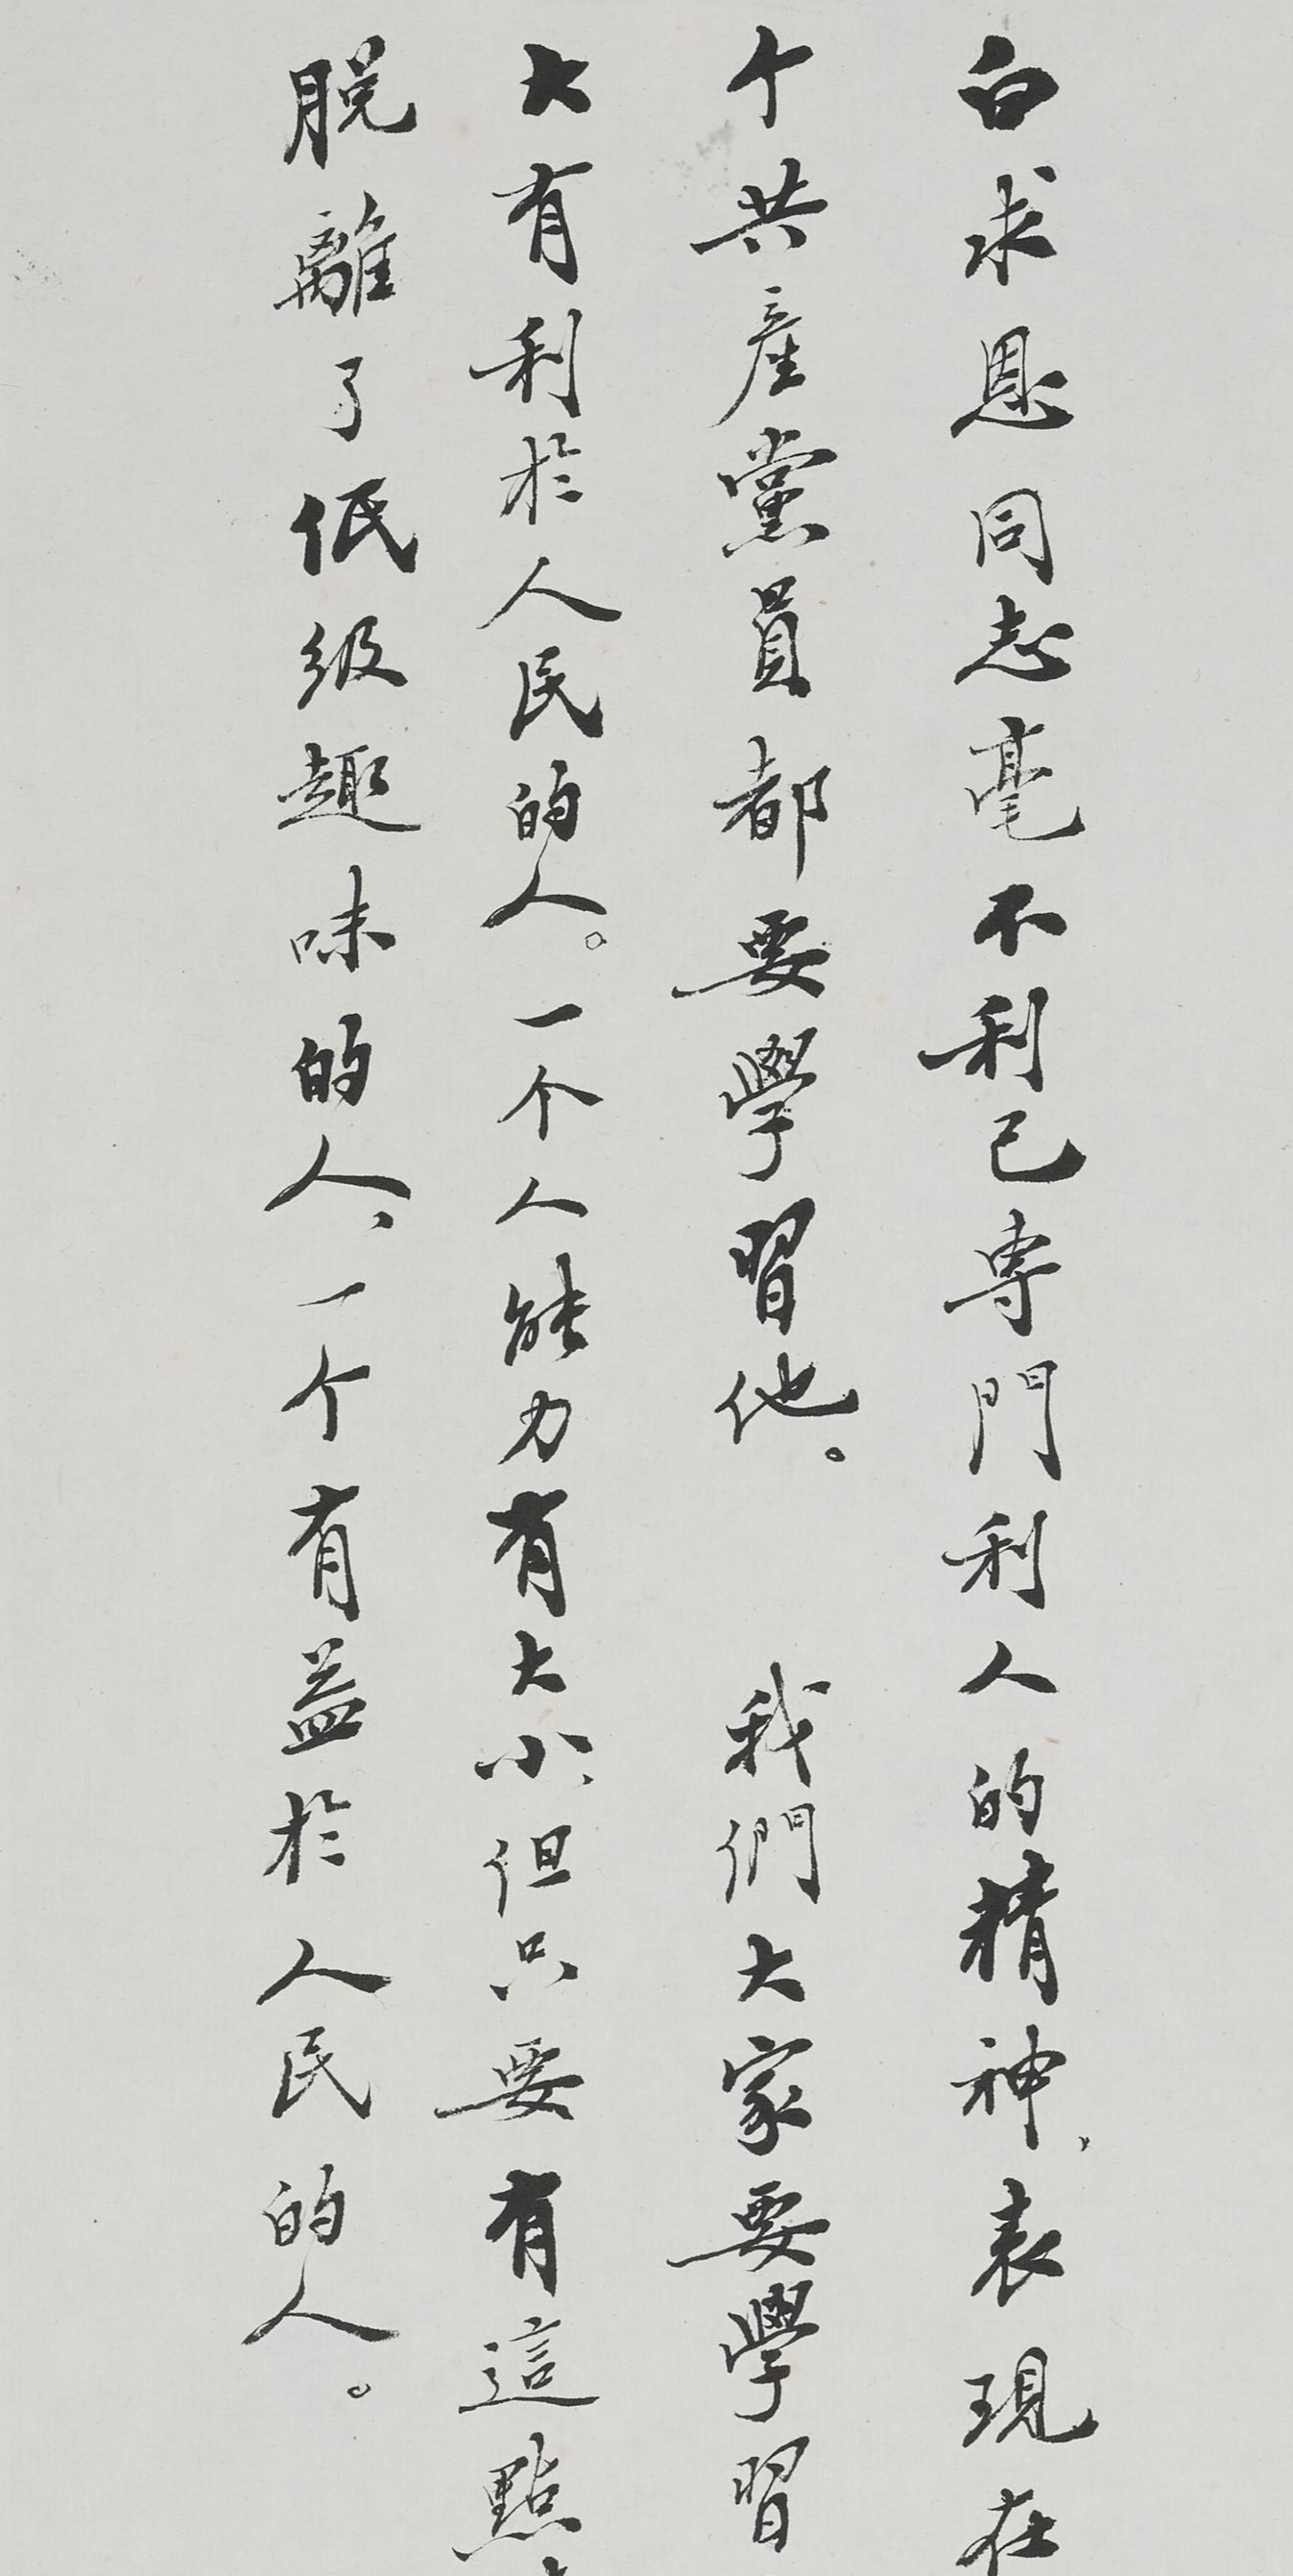 白求恩同志毫不利己専門利人的精神，表現在
个共產黨員都要學習他。 我們大家要學習
大有利於人民的人。一个人能力有大小，但只要有這點，
脱離了低级趣味的人，一个有益於人民的人。